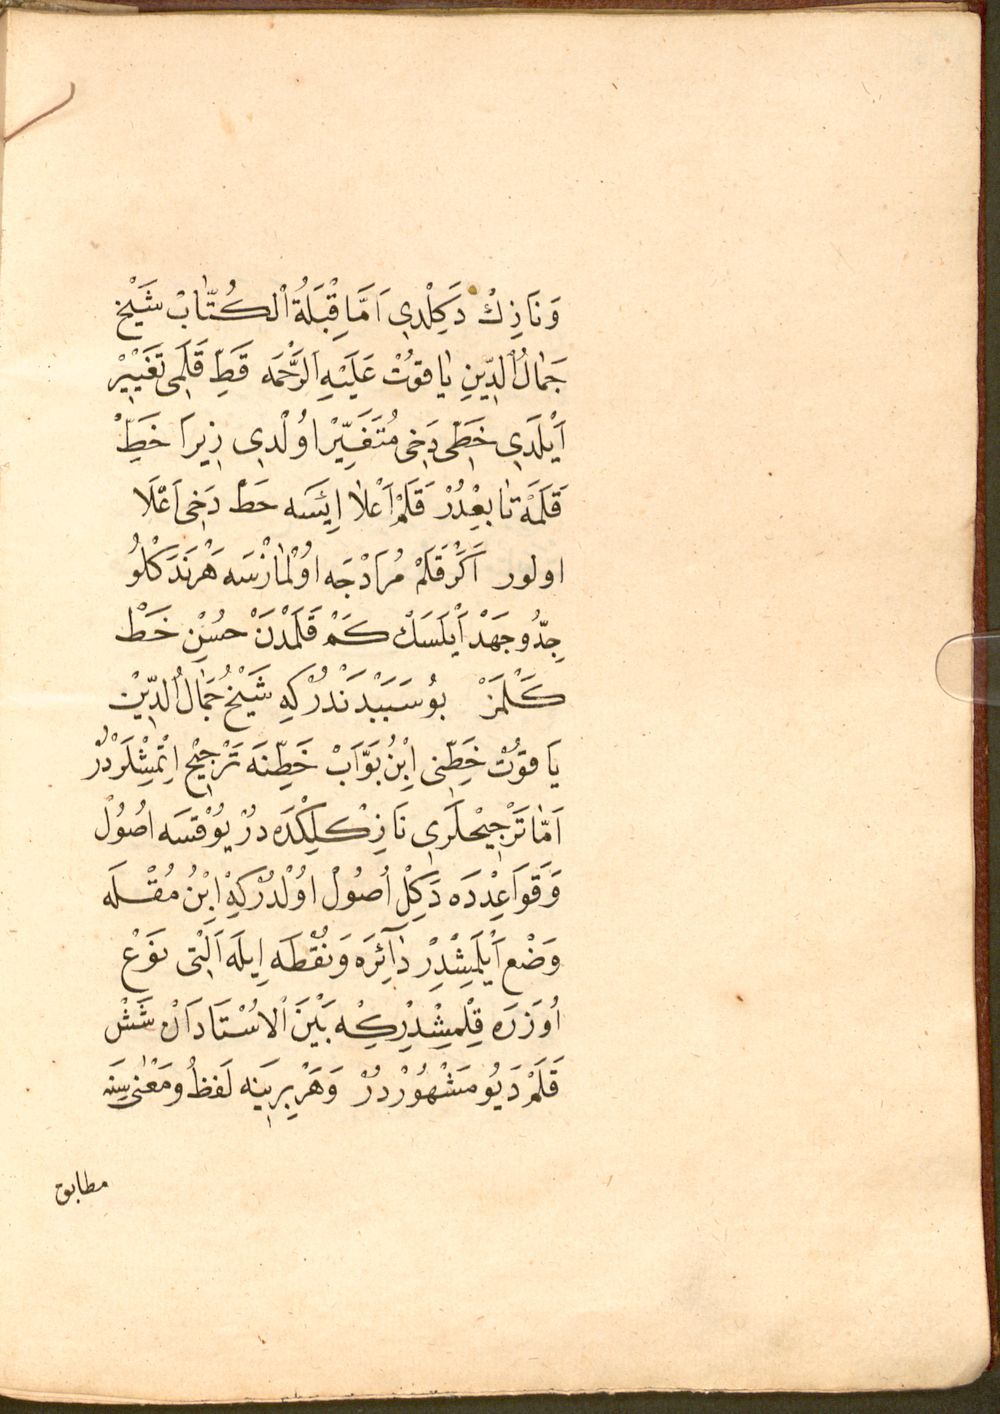 وَنَازِكْ دَكِلْدِي اَمَّا قِبْلَةُ الْكُتَّابْ شَيْخ
جَمَالُ الدِّينِ يَاقوُتْ عَلَيْهِ الرَّحْمَه قَطِّ قَلَمِى تَغْيِيرْ
اَيْلَدِي خَطِّى دَخِى مُتَغَيِّرْ اوُلْدِي زِيرَا خَطِّ
قَلَمَه تَابِعْدُرْ قَلَمْ اَعْلَا اِيسَه خَطّ دَخِى اَعْلَا
اولور اَكَرْ قَلَمْ مُرَادْجَه اوُلْمَازْسَه هَرْنَدَكْلُو
جِدُّو جَهَدْ اَيْلَسَكْ كَمْ قَلَمْدَنْ حُسْنِ خَطْ
كَلْمَزْ بوُ سَبَبْدَنْدُرْ كِه شَيْخُ جَمَالُ الدِّيْن
يَاقوُتْ خَطِّنِى اِبْنُ بَوَّابْ خَطِّنَه تَرْجِيْح اِتْمِشْلَرْدُرْ
اَمَّا تَرْجِيْحلَرِي نَازِكْلِكْدَه دُرْ يوُقْسَه اصُوُلْ
وَقَوَاعِدْدَه دَكِلْ اُصُولْ اوُلْدُرْكِه اِبْنُ مُقْلَه
وَضْع اَيْلَمِشْدِرْ دَآئِرَه وَنُقْطَه اِيلَه اَلْتِى نَوْع
اُوزَرَه قِلْمِشْدِرْكِه بَيْنَ الْاُسْتَادَانْ شَشْ
قَلَمْ دَيُو مَشْهُوُرْدُرْ وَهَرْ بِرِيَنه لَفظُ ومَعْنَى سِنَه
مطابق